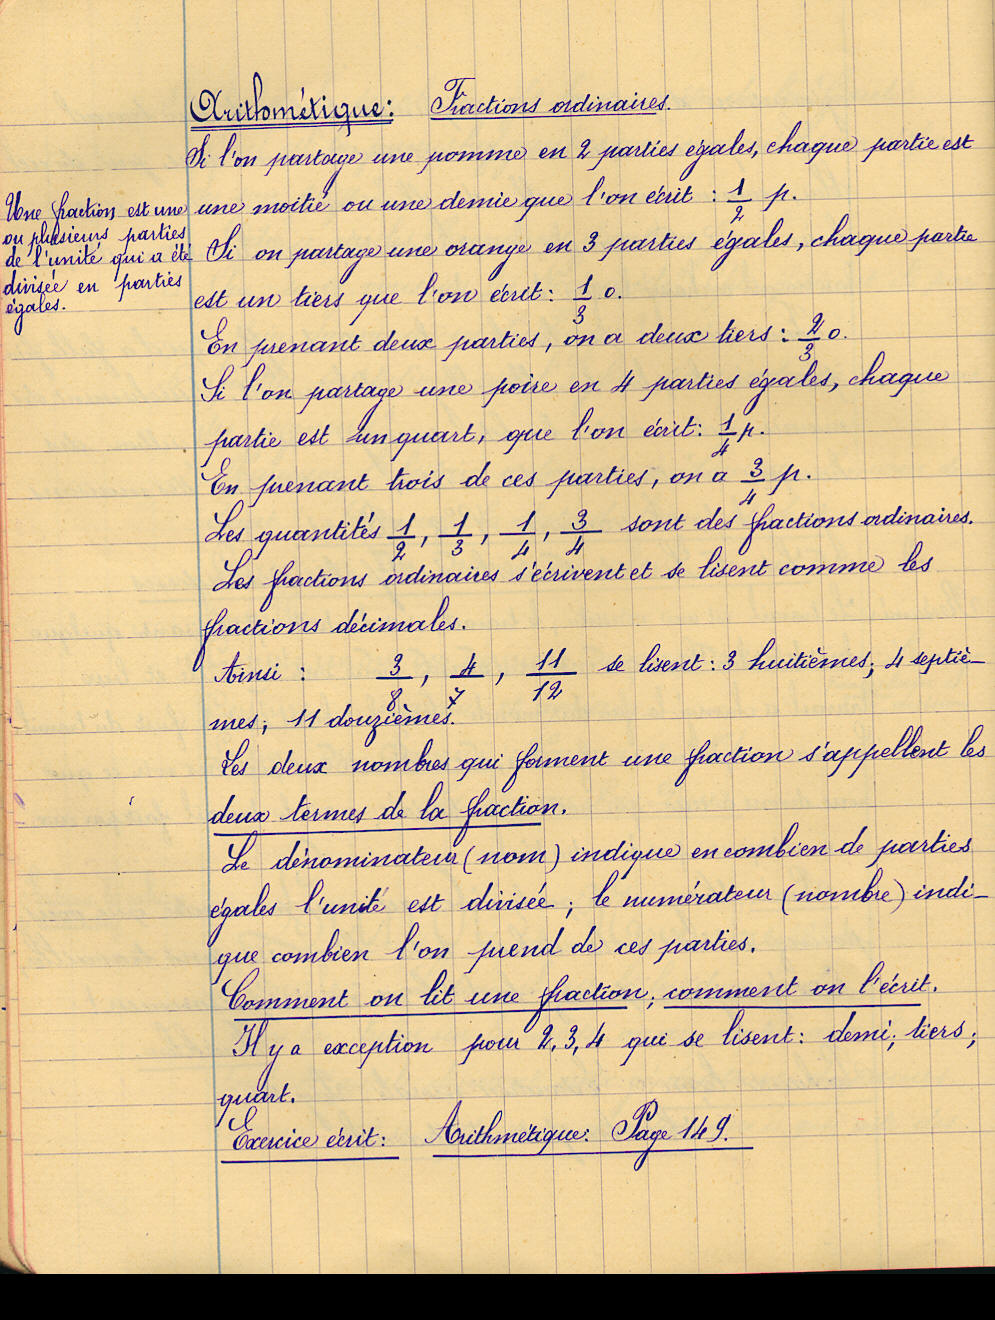 Arithmétique: Fractions ordinaires.
Si l'on partage une pomme en 2 parties égales, chaque partie est
une moitié ou une demie que l'on écrit : 1/2 p.
Si on partage une orange en 3 parties égales, chaque partie
est un tiers que l'on écrit : 1/3 o.
En prenant deux parties, on a deux tiers : 2/3 o.
Si l'on partage une poire en 4 parties égales, chaque
partie est un quart, que l'on écrit : 1/4 p.
En prenant trois de ces parties, on a 3/4 p.
Les quantités 1/2, 1/3, 1/4, 3/4 sont des fractions ordinaires.
Les fractions ordinaires s'écrivent et se lisent comme les
fractions décimales.
Ainsi : 3/8, 4/7, 11/12 se lisent : 3 huitièmes; 4 septiè-
mes; 11 douzièmes.
Les deux nombres qui forment une fraction s'appellent les
deux termes de la fraction.
Le dénominateur (nom) indique en combien de parties
égales l'unité est divisée; le numérateur (nombre) indi-
que combien l'on prend de ces parties.
Comment on lit une fraction; comment on l'écrit.
Il y a exception pour 2, 3, 4 qui se lisent : demi; tiers;
quart.
Exercice écrit : Arithmétique: Page 149.
Une fraction est une
ou plusieurs parties
de l'unité qui a été
divisée en parties
égales.